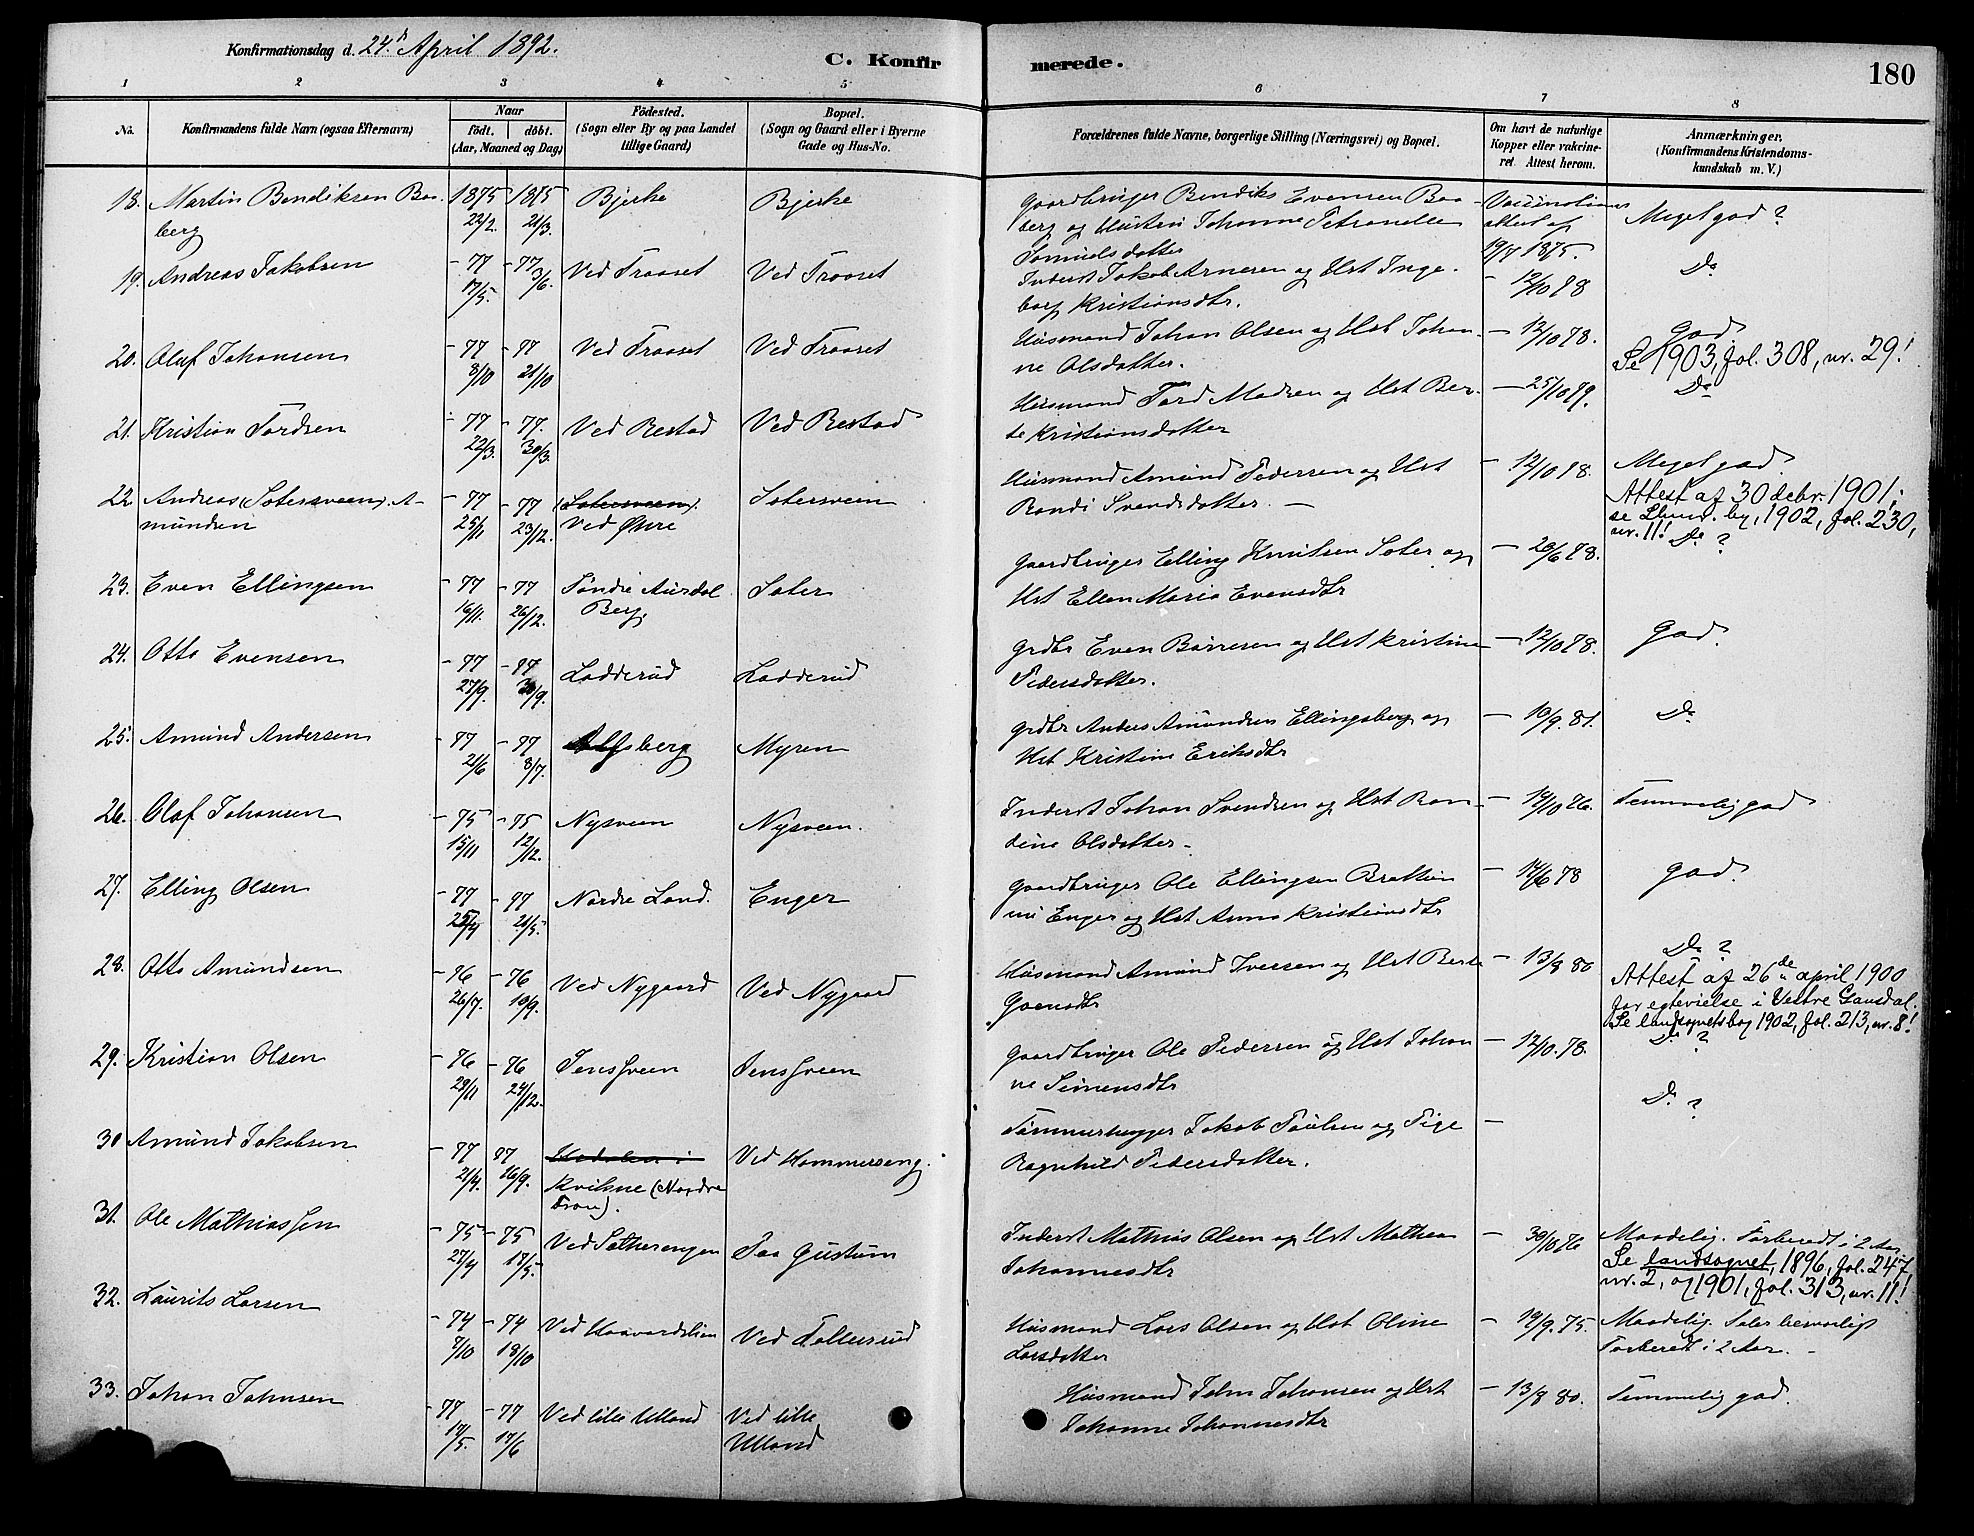 Konfirmationsdag d. 24. April 1892.
C. Konfirmerede.
180
1 2 3 4 5 6 7 8
No. Konfirmandens fulde Navn (ogsaa Efternavn)
Naar födt. döbt. (Aar, Maaned og Dag)
Födested. (Sogn eller By og paa Landet tillige Gaard)
Bopæl. (Sogn og Gaard eller i Byerne Gade og Hus-No.
Forældrenes fulde Navne, borgerlige Stilling (Næringsvei) og Bopæl.
Om havt de naturlige Kopper eller vakcineret. Attest herom.
Anmærkninger. (Konfirmandens Kristendomskundskab m. V.)
18. Martin Bendiksen Baaberg 1875 22/2. 1875 21/3. Bjerke Bjerke
Gaardbruger Bendiks Evensen Baaberg og Hustru Johanne Petronelle Samuelsdatter
Vaccinations attest af 19/7 1875. Meget god?
19. Andreas Jakobsen - 77 17/5. - 77 3/6. Ved Fraaset Ved Fraaset
Inderst Jakob Arnesen og Hst Ingeborg Kristiansdtr. - 12/10 78 Do
20. Oluf Johansen - 77 8/10 - 77 21/10 Ved Fraaset Ved Fraaset
Husmand Johan Olsen og Hst Johanne Olsdatter. - 12/10 78. God.
Se 1903, fol. 308, nr. 29!
21. Kristian Tordsen - 77 22/3. - 77. 30/3. Ved Bestad Ved Bestad
Husmand Tord Madsen og Hst Berte Kristiansdatter - 25/10 79. Do
22. Andreas (Sotersveen) Amundsen - 77 25/11 - 77 23/12. (Sotersveen). Ved Øvre Sotersveen
Husmand Amund Pedersen og Hst Randi Svendsdatter. - - 12/10 78. Meget god.
Attest af 30 debr. 1901;
1902, fol. 230,
nr. 11!
23. Even Ellingsen - 77 16/11. - 77 26/12. Søndre Aurdal Berg. Soter
Gaardbruger Elling Knutsen Soter og Hst Ellen Maria Evensdtr - 20/6 78. Do ?
24. Otto Evensen - 77 27/9. - 77 30/9. Ladderud Ladderud
Grdbr Even Børresen og Hst Kristine Pedersdatter. - 12/10 78. God.
25. Amund Andersen - 77 21/6 - 77 8/7. Alfsberg Myren
Grdbr Anders Amundsen Ellingsberg og Hst Kristine Eriksdtr - 10/9. 81. Do
26. Olaf Johansen - 75 15/11 - 75 12/12. Nysveen Nysveen.
Inderst Johan Svendsen og Hst Randine Olsdatter - - 14/10 76. Temmelig god
27. Elling Olsen - 77 25/4 - 77 21/5. Nordre Land. Enger
Gaardbruger Ole Ellingsen Bratten nu Enger og Hst Anna Kristiansdtr - 14/6 78 God.
28. Otto Amundsen - 76 26/7. - 76 10/9. Ved Nygaard Ved Nygaard
Husmand Amund Iversen og Hst Berte - 13/8 80 Do ?
Attest af 26de april 1900
for egtevielse i Vestre Gausdal.
Se landsognets bog 1902, fol. 213, nr. 8!
29. Kristian Olsen - 76 29/11 - 76 24/12. Jenssveen Jenssveen
Gaardbruger Ole Pedersen og Hst Johanne Simensdtr - 12/10. 78. Do ?
30 Amund Jakobsen - 77 21/4. 77 16/9. Kvikne (Nordre Fron). Ved Hammerseng.
Tømmerhugger Jakob Paulsen og Pige Ragnhild Pedersdatter. - Do ?
31. Ole Mathiassen - 75 27/4 - 75 17/5. Ved Sætherengen Paa Gustum
Inderst Mathias Olsen og Hst Mathea Johannesdtr - 30/10 76 Maadelig. Forberedt i 2 Aar.
Se landsognet, 1896, fol. 247
nr. 2, og 1901, fol. 313, nr. 11!
32. Laurits Larsen - 74 7/10 - 74 18/10 Ved Haavardslien Ved Tollersrud
Husmand Lars Olsen og Hst Oline Larsdatter - 19/9. 75. Maadelig. Forberedt i 2 Aar. -
33. Johan Johnsen - 77 17/5. - 77 17/6 Ved lille Ulland Ved lille Ulland
Husmand John Johansen og Hst Johanne Johannesdtr - 13/8 80. Temmelig god.